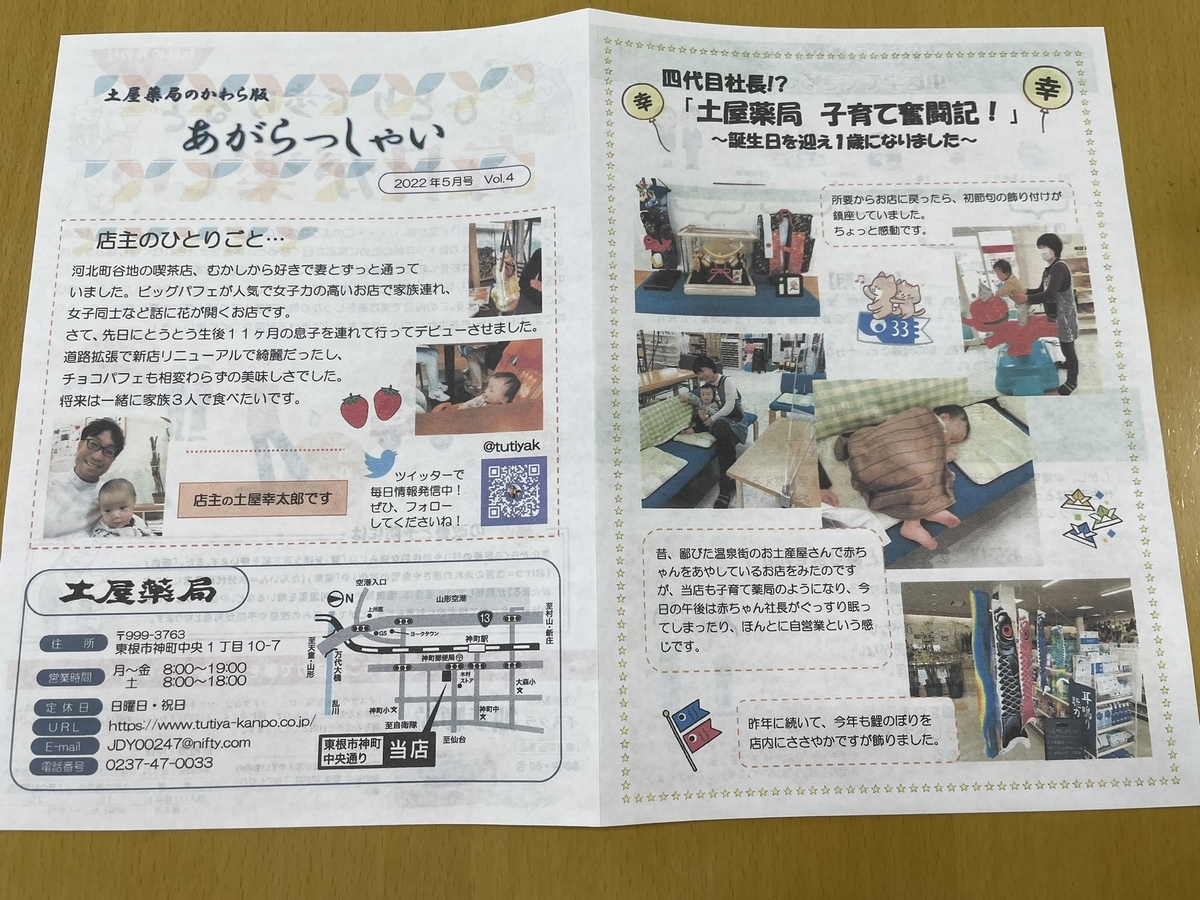 土屋薬局のかわら版
あがらっしゃい
2022年5月号 Vol.4
店主のひとりごと…
河北町谷地の喫茶店、むかしから好きで妻とずっと通って
いました。ビッグパフェが人気で女子力の高いお店で家族連れ、
女子同士など話に花が開くお店です。
さて、先日にとうとう生後11ヶ月の息子を連れて行ってデビューさせました。
道路拡張で新店リニューアルで綺麗だったし、
チョコパフェも相変わらずの美味しさでした。
将来は一緒に家族3人で食べたいです。
店主の土屋幸太郎です
@tutiyak
ツイッターで
毎日情報発信中！
ぜひ、フォロー
してくださいね！
土屋薬局
住所
〒999-3763
東根市神町中央1丁目10-7
営業時間
月～金 8:00～19:00
土 8:00～18:00
定休日 日曜日・祝日
URL https://www.tutiya-kanpo.co.jp/
E-mail JDY00247@nifty.com
電話番号 0237-47-0033
空港入口
N
山形空港
上州屋
GS
ヨークタウン
13
至村山・新庄
神町駅
至天童・山形
万代大橋
乱川
神町郵便局
木村
ストア
大森小
神町小
神町中
至自衛隊
至仙台
東根市神町
中央通り
当店
四代目社長!?
「土屋薬局 子育て奮闘記！」
～誕生日を迎え1歳になりました～
幸
幸
所要からお店に戻ったら、初節句の飾り付けが
鎮座していました。
ちょっと感動です。
33
昔、鄙びた温泉街のお土産屋さんで赤ち
ゃんをあやしているお店をみたのです
が、当店も子育て薬局のようになり、今
日の午後は赤ちゃん社長がぐっすり眠っ
てしまったり、ほんとに自営業という感
じです。
耳鳴り
昨年に続いて、今年も鯉のぼりを
店内にささやかですが飾りました。